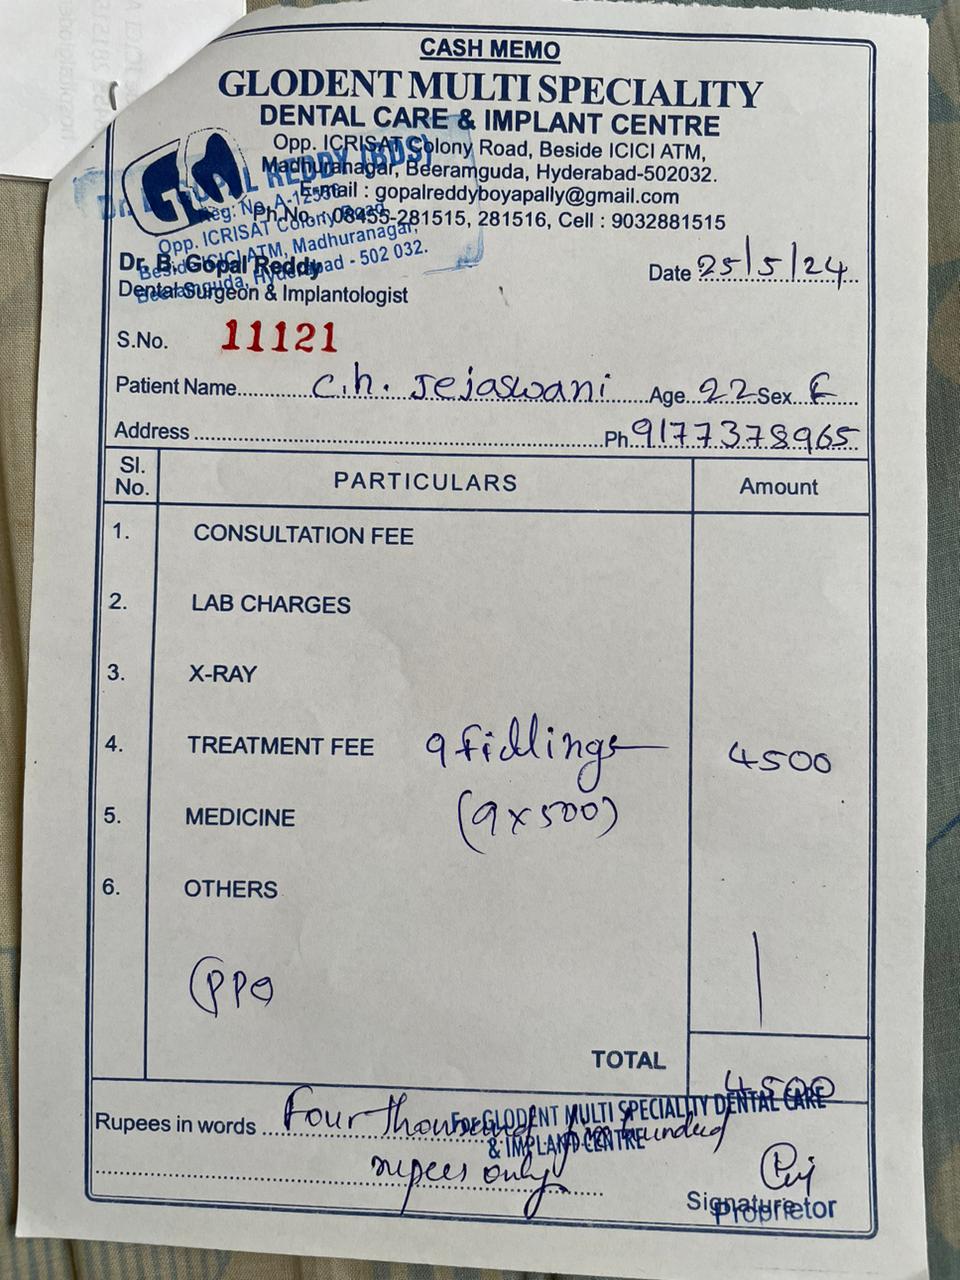 CASH MEMO
GLODENT MULTI SPECIALITY
DENTAL CARE & IMPLANT CENTRE
Opp. ICRISAT Colony Road, Beside ICICI ATM,
Madhuranagar, Beeramguda, Hyderabad-502032.
E-mail : gopalreddyboyapally@gmail.com
Ph.No. : 08455-281515, 281516, Cell : 9032881515
GOPAL REDDY (BDS)
Reg: No. A-12556
Opp. ICRISAT Colony Road,
Beside ICICI ATM, Madhuranagar,
Beeramguda, Hyderabad - 502 032.
Dr. B. Gopal Reddy
Dental Surgeon & Implantologist
Date 25/5/24
S.No. 11121
Patient Name c.h. Tejaswani Age 22 Sex F
Address Ph 9177378965
Sl. No. PARTICULARS Amount
1. CONSULTATION FEE
2. LAB CHARGES
3. X-RAY
4. TREATMENT FEE 9 fillings 4500
5. MEDICINE (9x500)
6. OTHERS
TOTAL 4500
Rupees in words four thousand five hundred
rupees only
For GLODENT MULTI SPECIALITY DENTAL CARE
& IMPLANT CENTRE
Signature
Proprietor